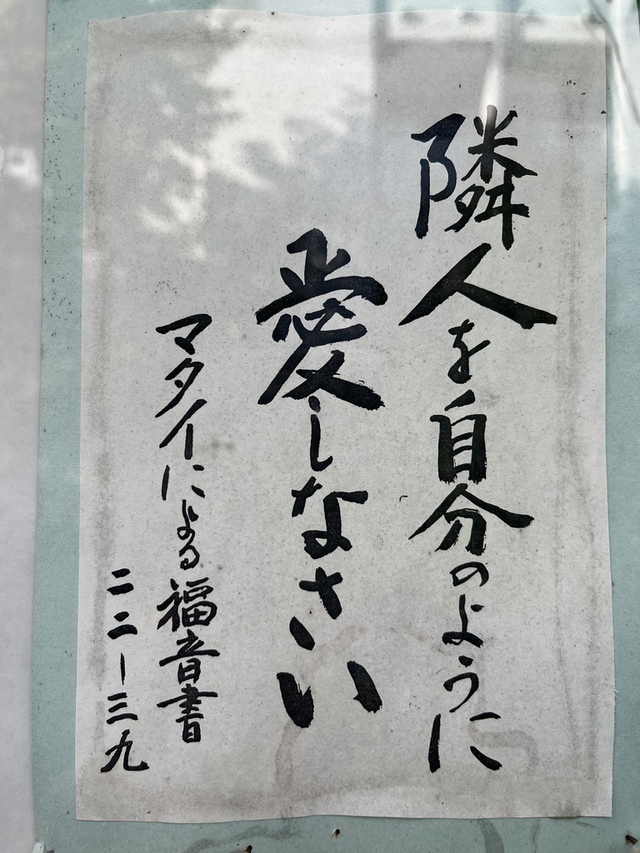 隣人を自分のように
愛しなさい
マタイによる福音書
二二ー三九